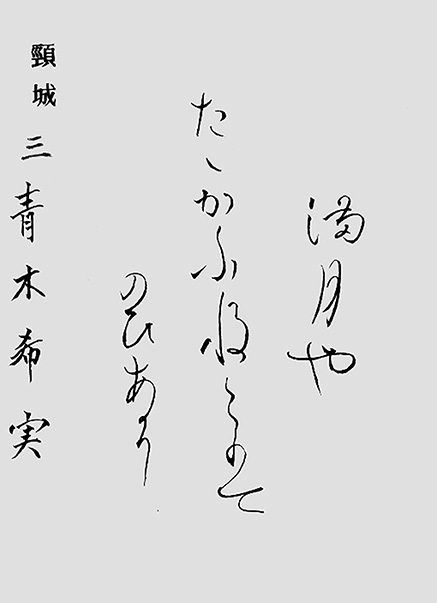 満月や
たゝかふねこ
のひあかり
頸城 三 青木希実